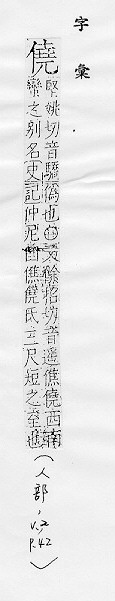 字彙
僥 堅姚切音驍偽也○又餘招切音遙僬僥西南
蠻之別名史記仲尼曰僬僥氏三尺短之至也
(人部,
V.2
P.42)